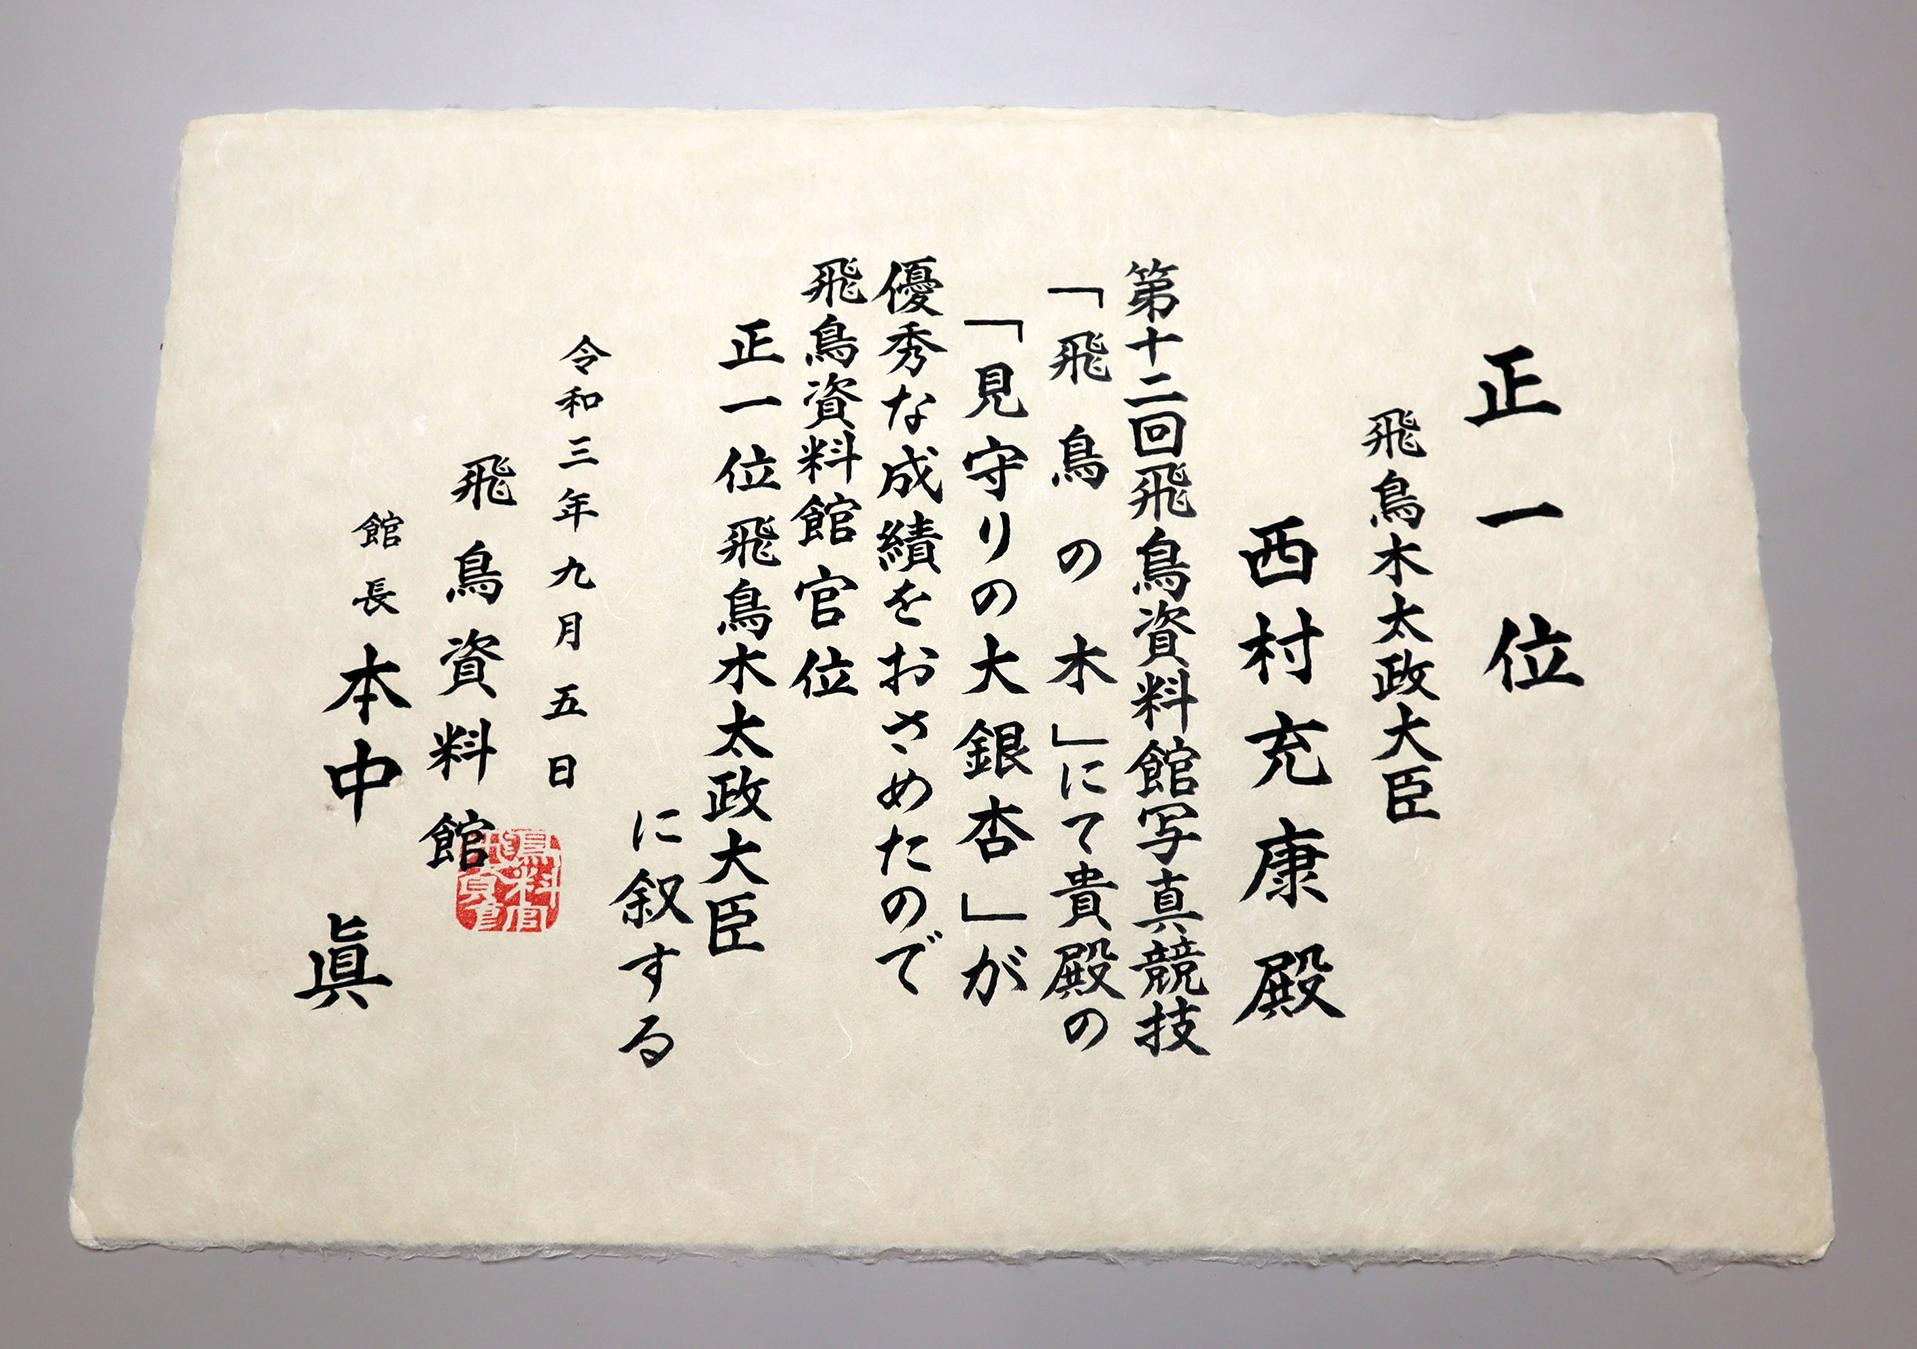 正一位
飛鳥木太政大臣
西村充康殿
第十二回飛鳥資料館写真競技
「飛鳥の木」にて貴殿の
「見守りの大銀杏」が
優秀な成績をおさめたので
飛鳥資料館官位
正一位飛鳥木太政大臣
に叙する
令和三年九月五日
飛鳥資料館
館長本中眞